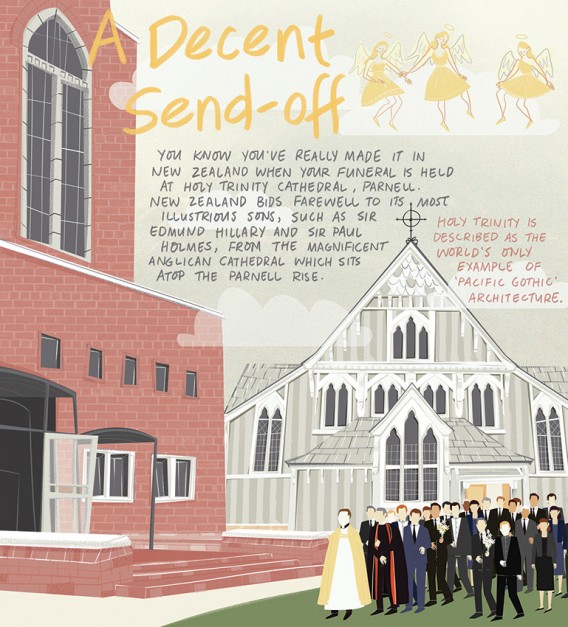 A Decent
Send-off
YOU KNOW YOU'VE REALLY MADE IT IN
NEW ZEALAND WHEN YOUR FUNERAL IS HELD
AT HOLY TRINITY CATHEDRAL, PARNELL.
NEW ZEALAND BIDS FAREWELL TO ITS MOST
ILLUSTRIOUS SONS, SUCH AS SIR
EDMUND HILLARY AND SIR PAUL
HOLMES, FROM THE MAGNIFICENT
ANGLICAN CATHEDRAL WHICH SITS
ATOP THE PARNELL RISE.
HOLY TRINITY IS
DESCRIBED AS THE
WORLD'S ONLY
EXAMPLE OF
'PACIFIC GOTHIC'
ARCHITECTURE.